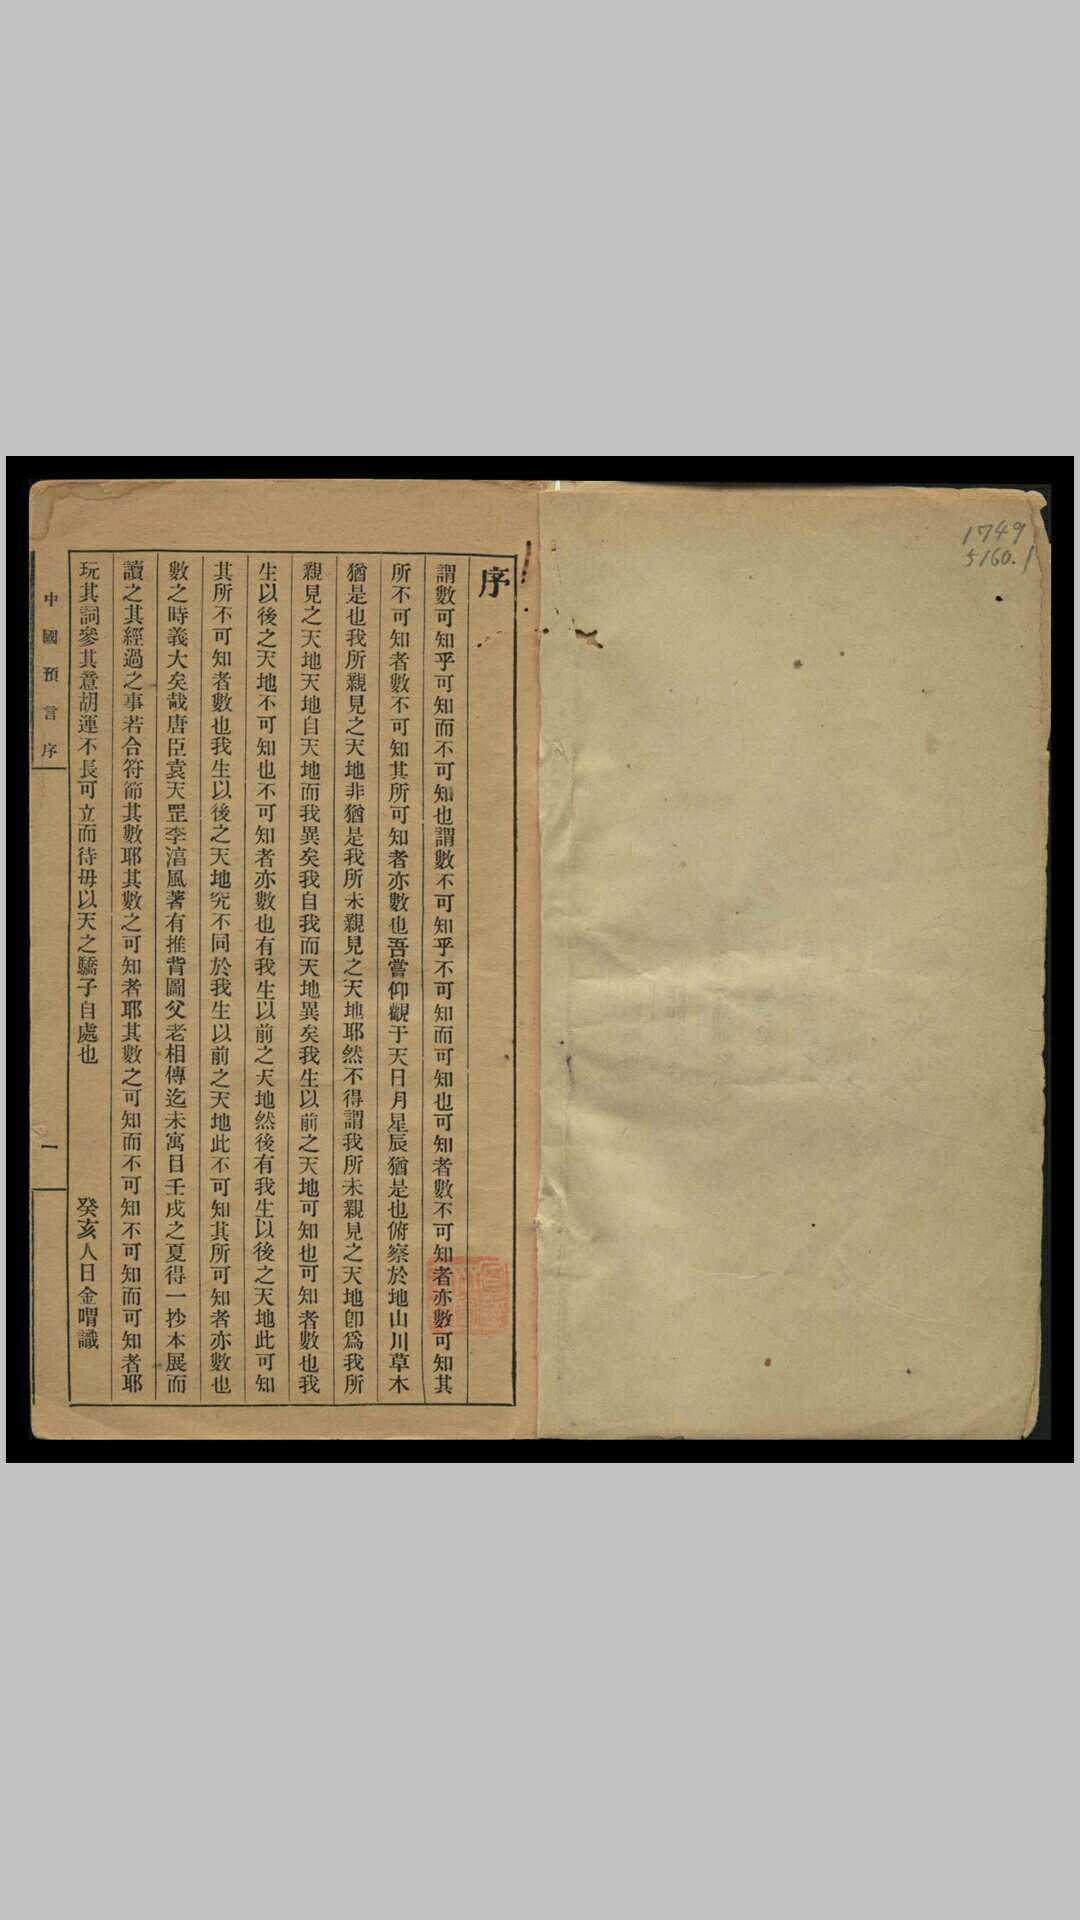 1749
5160.1
序
謂數可知乎可知而不可知也謂數不可知乎不可知而可知也可知者數不可知者亦數可知其
所不可知者數不可知其所可知者亦數也吾嘗仰觀于天日月星辰猶是也俯察於地山川草木
猶是也我所親見之天地非猶是我所未親見之天地耶然不得謂我所未親見之天地卽爲我所
親見之天地天地自天地而我異矣我自我而天地異矣我生以前之天地可知也可知者數也我
生以後之天地不可知也不可知者亦數也有我生以前之天地然後有我生以後之天地此可知
其所不可知者數也我生以後之天地究不同於我生以前之天地此不可知其所可知者亦數也
數之時義大矣哉唐臣袁天罡李淯風著有推背圖父老相傳迄未寓目壬戌之夏得一抄本展而
讀之其經過之事若合符節其數耶其數之可知者耶其數之可知而不可知不可知而可知者耶
玩其詞參其意胡運不長可立而待毋以天之驕子自處也
癸亥人日金喟識
中國預言序
一